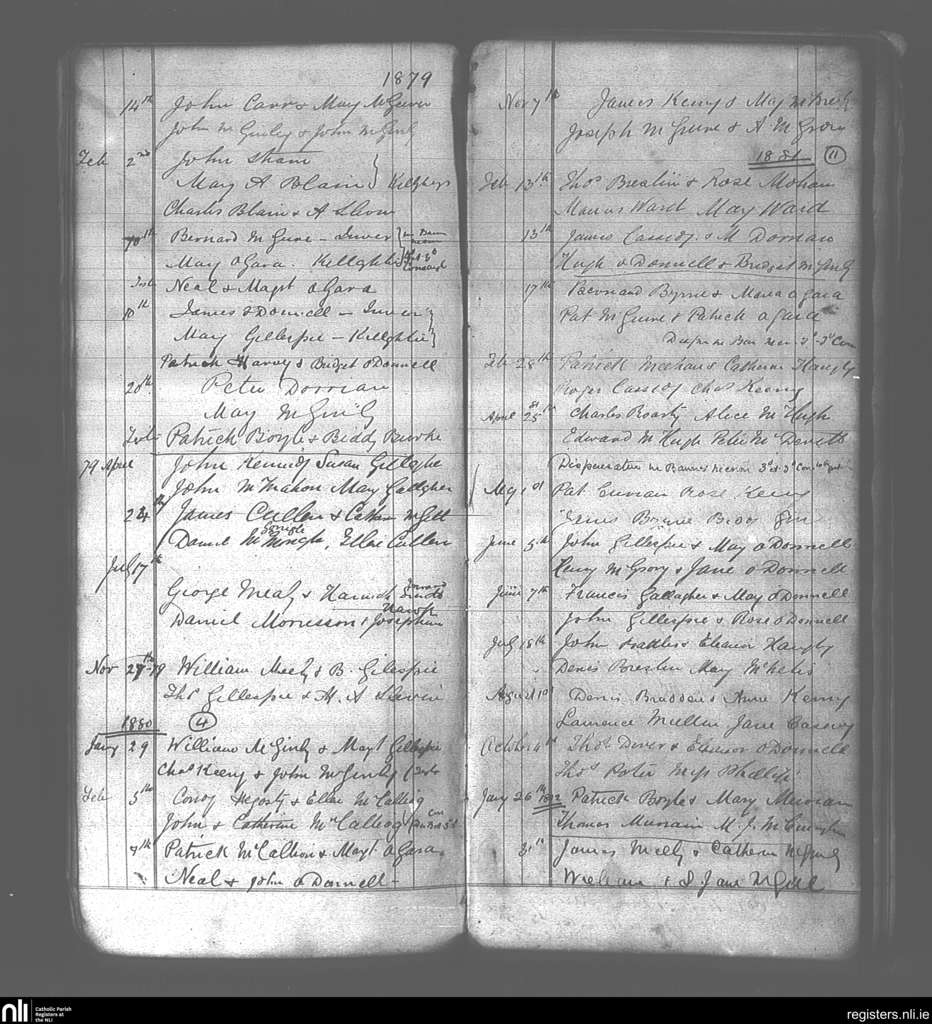 1879
14th John Carr & Mary McGuire
John McGinley & John McGinly
Feb 2nd John
Mary A Blain } Killghys
Charles Blain & A Slevin
10th Bernard McGuire - Inver
Mary OGara. Killghtie
Neal & Magt OGara
10th James ODonnell - Inver
Mary Gillespie - Killghtie
Patrick Harvey & Bridget ODonnell
20th Peter Dorrian
May McGinly
Patrick Boyle & Biddy Burke
79 April John Kennedy Susan Gallagher
John McMahon May Gallagher
24th James Cullen & Cathn McGill
Daniel McMonigle, Ellen Cullen
July 17th
George Mealy & Hannah
Daniel Morrisson & Josephine
Nov 27th - 79 William Meely & B. Gillespie
Thos Gillespie & M. A Slevin
1880 4
Jany 29 William McGinly & Magt Gillespie
Chas Keeny & John McGinly
Feb 5th Condy Hegarty & Ellen McCalliog
John & Catherine McCalliog
9th Patrick McCallion & Magt OGara
Neal & John ODonnell -
Nov 7th James Keeny & May McBrearty
Joseph McGuire & A McGrory
1881 11
Feb 13th Thos Breslin & Rose Mohan
Manus Ward May Ward
13th James Cassidy & M Dorrian
Hugh ODonnell & Bridget McGinly
17th Bernard Byrne & Maria OGara
Pat McGuire & Patrick OGara
Feb 28th Patrick Meehan & Catherine Haughey
Roger Cassidy Chas Keeny
April 25th Charles Roarty Alice McHugh
Edward McHugh Peter McDevitt
May 1st Pat Curran Rose Keeny
James Byrne Biddy
June 5th John Gillespie & May ODonnell
Henry McGrory & Jane ODonnell
June 7th Francis Gallagher & May ODonnell
John Gillespie & Rose ODonnell
July 18th John & Eleanor Haughey
Denis Breslin May McNelis
August 10 Denis Bradden & Anne Kenny
Laurence Mullin Jane Cassidy
October 4th Thos Dever & Eleanor ODonnell
Thos Porter Miss Phillips
Jany 26th 1882 Patrick Boyle & Mary Murrain
Thomas Murrain M. J. McCunnighan
31st James Meely & Catherine McGinly
William & S Jane McGill
nli
Catholic Parish
Registers at
the NLI
registers.nli.ie